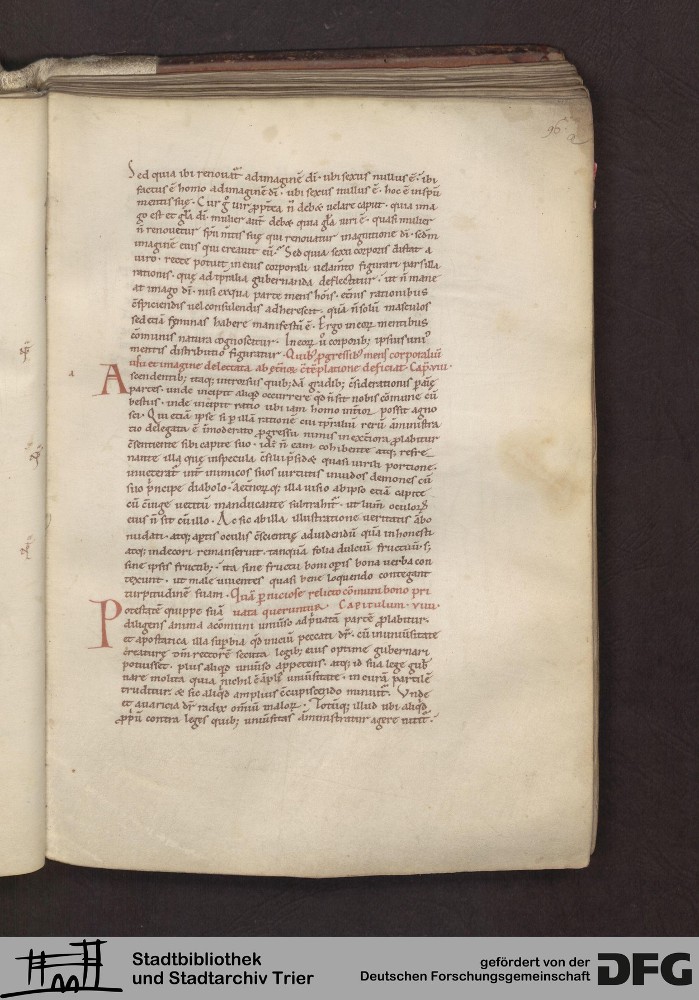 96
a
Sed quia ibi renouat̄ ad imaginē dī · ubi sexus nullus ē · ibi
factus ē homo ad imaginē dī · ubi sexus nullus ē · hoc ē in spū
mentis suę · Cur g̊ uir ꝓpt̄ea n̄ debet uelare caput · quia ima
go est et gl̄a dī · mulier aut̄ debet quia gl̄a uiri ē · quasi mulier
n̄ renouetur spū m̄tis suę qui renouatur in agnitione dī · scdm̄
imaginē eius qui creauit eū · Sed quia sexu corporis distat a
uiro · recte potuit in eius corporali uelam̄to figurari pars illa
rationis · quę ad tp̄ralia gubernanda deflectitur · ut n̄ mane
at imago dī · nisi ex qua parte mens hōis · et̄nis rationibus
c̄spiciendis uel consulendis adherescit · quā n̄ solū masculos
sed etiā feminas habere manifestū ē · Ergo in eoꝝ mentibus
cōmunis natura cognoscitur · In eoꝝ ū corporib; ipsius uni⁹
mentis distributio figuratur · Quib; ꝓgressib; mens corporaliū
usu et imagine delectata ab et̄noꝝ c̄tēplatione deficiat · Cap̄ · viii ·
Ascendentib; itaq; introrsus quib;dā gradib; c̄siderationis p̄ aīę
partes · unde incipit aliqd occurrere qd n̄ sit nobis cōmune cū
bestiis · inde incipit ratio ubi iam homo int̄ior possit agno
sci · Qui etiā ipse si p̄ illā rationē cui tp̄raliū rerū aministra
tio delegata ē īmoderato ꝓgressu nimis in ext̄iora ꝓlabitur
c̄sentiente sibi capite suo · id ē n̄ eam cohibente atq; refre
nante illa quę in specula c̄silii p̄sidet quasi uirili portione ·
inuet̄atur int̄ inimicos suos uirtutis inuidos demones cū
suo p̄ncipe diabolo · Aet̄noꝝq; illa uisio ab ipso etiā capite
cū c̄iuge uetitū manducante subtrahit̄ · ut lum̄ oculoꝝ
eius n̄ sit cū illo · Ac sic ab illa illustratione ueritatis ābo
nudati · atq; aptis oculis c̄scientię ad uidendū quā inhonesti
atq; indecori remanserint · tanquā folia dulciū fructuū s;
sine ipsis fructib; · ita sine fructu boni operis bona uerba con
texunt · ut male uiuentes quasi bene loquendo contegant
turpitudinem suam · Quā ꝑniciose relicto cōmuni bono pri
uata queruntur · Capitulum · viiii ·
Potestatē quippe suā
diligens anima a cōmuni uniu̅so ad p̄uatā partē ꝓlabitur ·
et apostatica illa supbia qd initiū peccati dr̄ · cū in uniu̅sitate
creaturę dm̄ rectorē secuta legib; eius optime gubernari
potuisset · plus aliqd uniu̅so appetens · atq; id sua lege gub̄
nare molita quia nichil ē āpl⁹ uniu̅sitate · in curā partilē
truditur · et sic aliqd amplius c̄cupiscendo minuit̄ · Unde
et auaricia dr̄ radix omiū maloꝝ · Totūq; illud ubi aliqd
ꝓp̄ū contra leges quib; uniu̅sitas aministratur agere nitit̄ ·
Stadtbibliothek
und Stadtarchiv Trier
gefördert von der
Deutschen Forschungsgemeinschaft
DFG